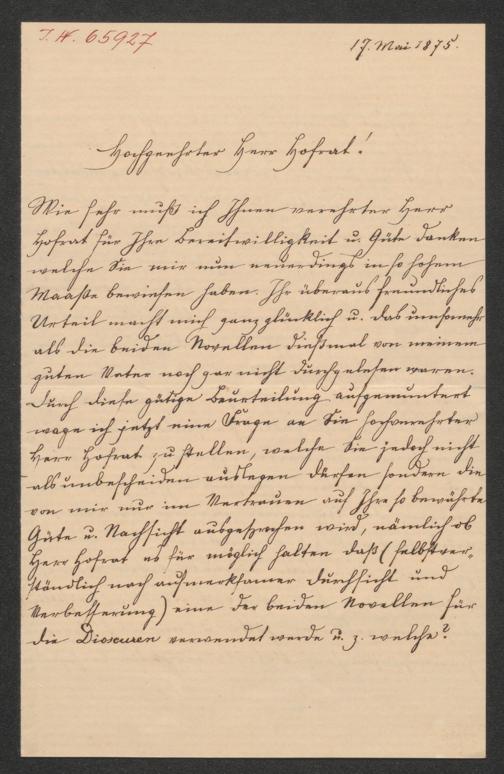 J.N. 65927
17. Mai 1875.
Hochgeehrter Herr Hofrat!
Wie sehr muß ich Ihnen verehrter Herr
Hofrat für Ihre Bereitwilligkeit u. Güte danken
welche Sie mir nun neuerdings in so hohem
Maaße bewiesen haben. Ihr überaus freundliches
Urteil macht mich ganz glücklich u. das umsomehr
als die beiden Novellen dießmal von meinem
guten Vater noch gar nicht durchgelesen waren.
Durch diese gütige Beurteilung aufgemuntert
wage ich jetzt eine Frage an Sie hochverehrter
Herr Hofrat zu stellen, welche Sie jedoch nicht
als unbescheiden auslegen dürfen sondern die
von mir nur im Vertrauen auf Ihre so bewährte
Güte u. Nachsicht ausgesprochen wird, nämlich ob
Herr Hofrat es für möglich halten daß (selbstver-
ständlich nach aufmerksamer Durchsicht und
Verbesserung) eine der beiden Novellen für
die Dioscuren verwendet werde u. z. welche?